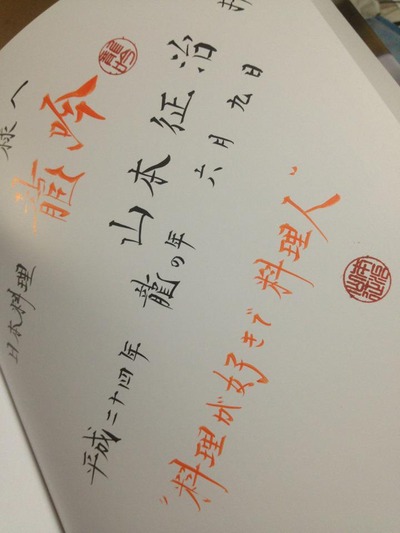 様へ
日本料理 龍吟
龍吟
山本征治
平成二十四年 龍の年 六月九日
“料理が好きで料理人”